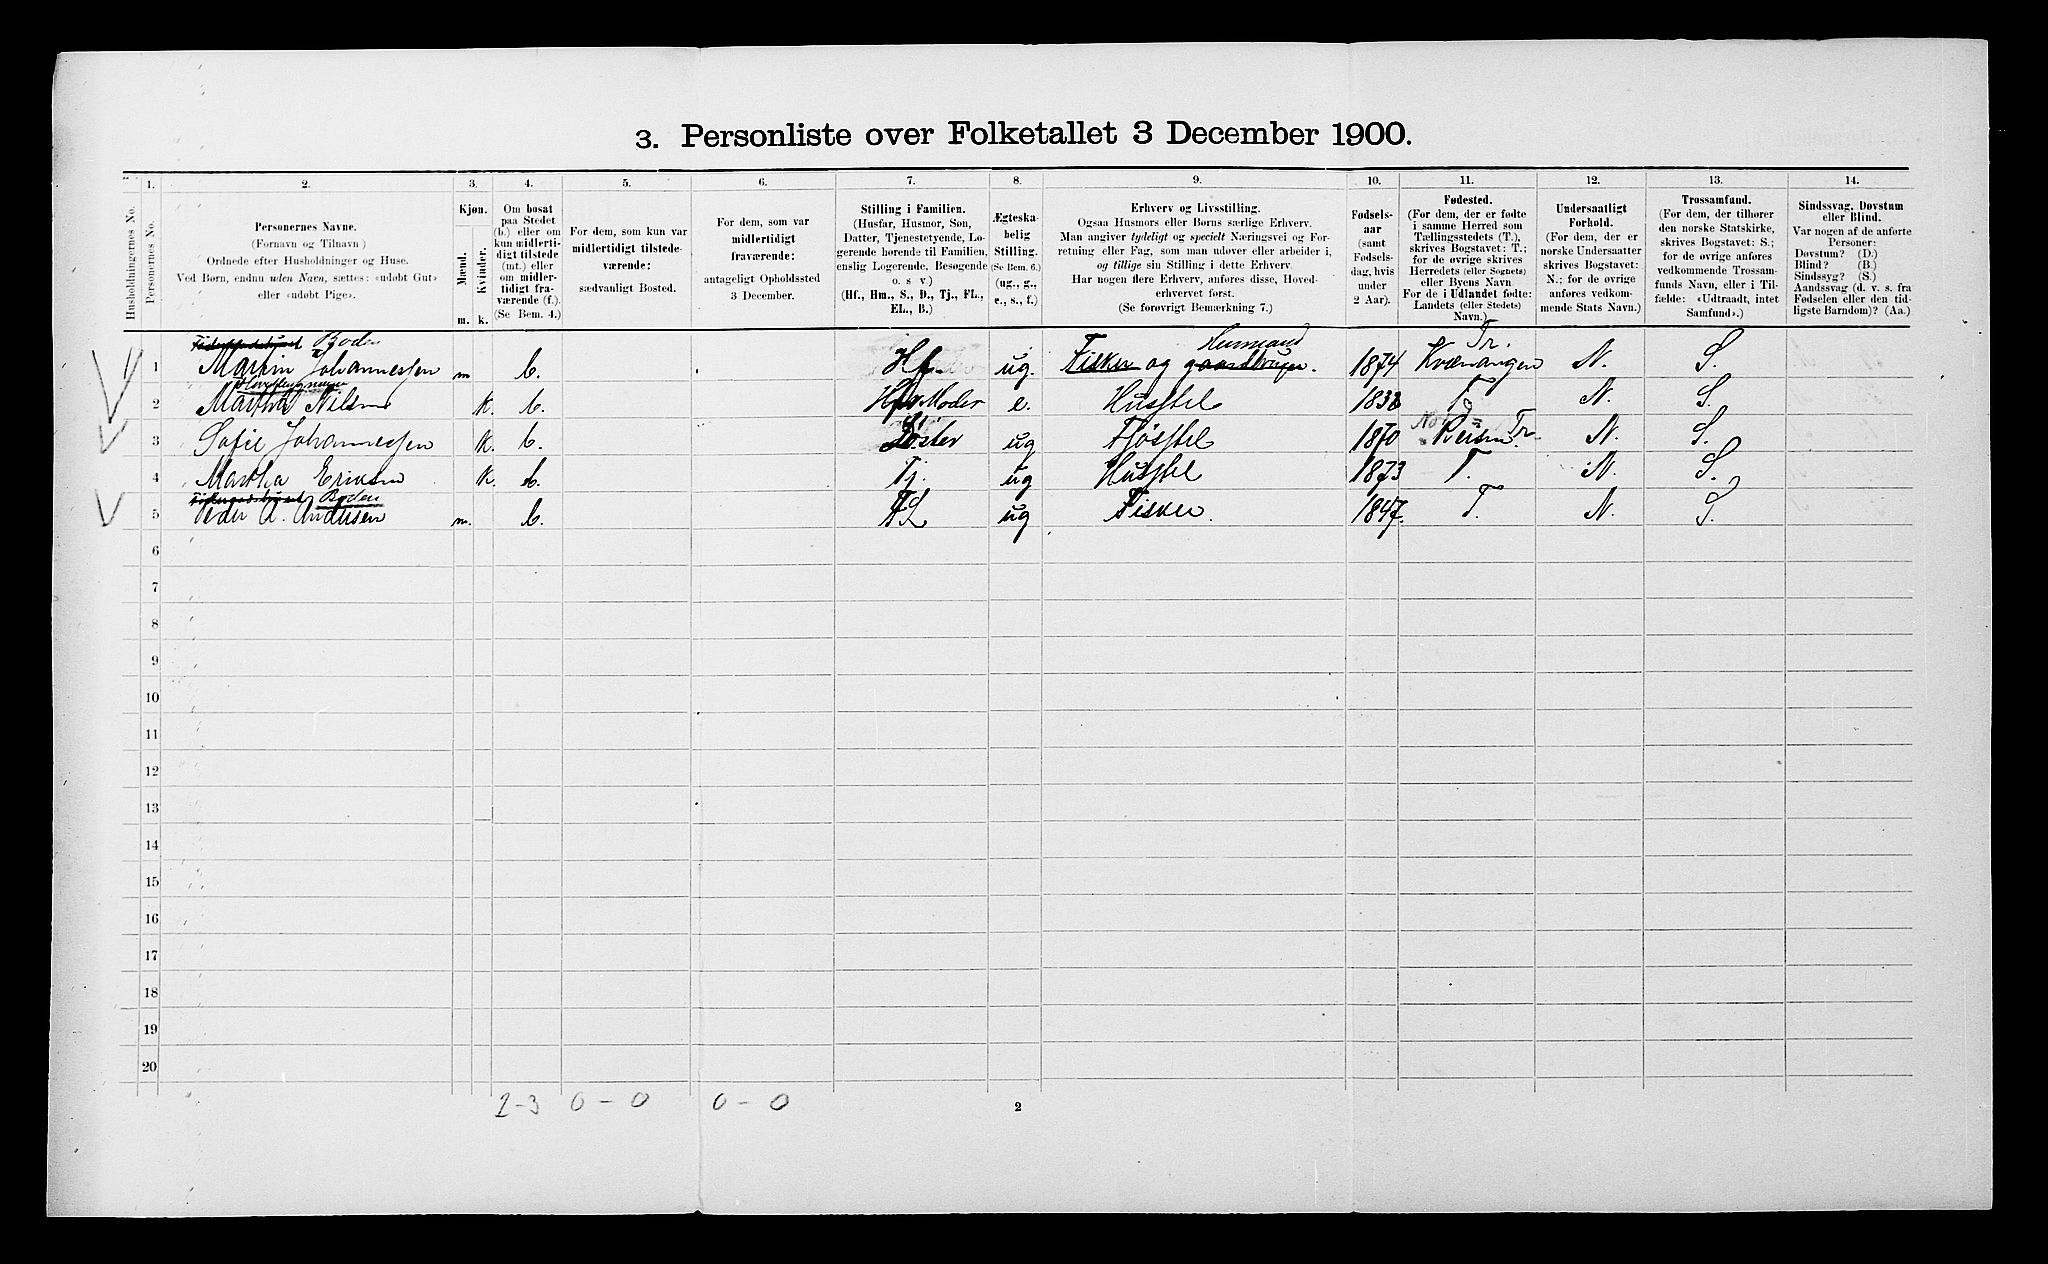 3. Personliste over Folketallet 3 December 1900.
1. 2. 3. 4. 5. 6. 7. 8. 9. 10. 11. 12. 13. 14.
Husholdningernes No.
Personernes No.
Personernes Navne.
(Fornavn og Tilnavn)
Ordnede efter Husholdninger og Huse.
Ved Børn, endnu uden Navn, sættes: «udøbt Gut»
eller «udøbt Pige».
Kjøn.
Mænd.
Kvinder.
m. k.
Om bosat
paa Stedet
(b.) eller om
kun midlerti-
digt tilstede
(mt.) eller
om midler-
tidigt fra-
værende (f.)
(Se Bem. 4.)
For dem, som kun var
midlertidigt tilstede-
værende:
sædvanligt Bosted.
For dem, som var
midlertidigt
fraværende:
antageligt Opholdssted
3 December.
Stilling i Familien.
(Husfar, Husmor, Søn,
Datter, Tjenestetyende, Lo-
gerende hørende til Familien,
enslig Logerende, Besøgende
o. s v.)
(Hf., Hm., S., D., Tj., FL.,
EL., B.)
Ægteska-
belig
Stilling.
(Se Bem. 6.)
(ug., g.,
e., s., f.)
Erhverv og Livsstilling.
Ogsaa Husmors eller Børns særlige Erhverv.
Man angiver tydeligt og specielt Næringsvei og For-
retning eller Fag, som man udøver eller arbeider i,
og tillige sin Stilling i dette Erhverv.
Har nogen flere Erhverv, anføres disse, Hoved-
erhvervet først.
(Se forøvrigt Bemærkning 7.)
Fødsels-
aar
(samt
Fødsels-
dag, hvis
under
2 Aar).
Fødested.
(For dem, der er fødte
i samme Herred som
Tællingsstedets (T.),
skrives Bogstavet: T.;
for de øvrige skrives
Herredets (eller Sognets)
eller Byens Navn.
For de i Udlandet fødte:
Landets (eller Stedets)
Navn.)
Undersaatligt
Forhold.
(For dem, der er
norske Undersaatter
skrives Bogstavet:
N.; for de øvrige
anføres vedkom-
mende Stats Navn.)
Trossamfund.
(For dem, der tilhører
den norske Statskirke,
skrives Bogstavet: S.;
for de øvrige anføres
vedkommende Trossam-
funds Navn, eller i Til-
fælde: «Udtraadt, intet
Samfund».)
Sindssvag, Døvstum
eller Blind.
Var nogen af de anførte
Personer:
Døvstum? (D.)
Blind? (B.)
Sindssyg? (S.)
Aandssvag (d. v. s. fra
Fødselen eller den tid-
ligste Barndom)? (Aa.)
Boden Husmand Tr.
1 Martin Johannessen m b. Hf. ug. Fisker og gaardbruger. 1874 Kvænangen N. S.
2 Martha Nilsen k. b. Moder e. Husstel 1838 T N. S.
3 Sofie Johannessen k. b. Søster ug Fjösstel 1870 Reisen Tr. N. S.
4 Martha Eriksen k. b. Tj. ug Husstel 1873 T. N. S.
Boden
5 Peder A. Andersen m. b. FL ug Fisker. 1847. T. N. S.
6
7
8
9
10
11
12
13
14
15
16
17
18
19
20
2-3 0-0 0-0
2